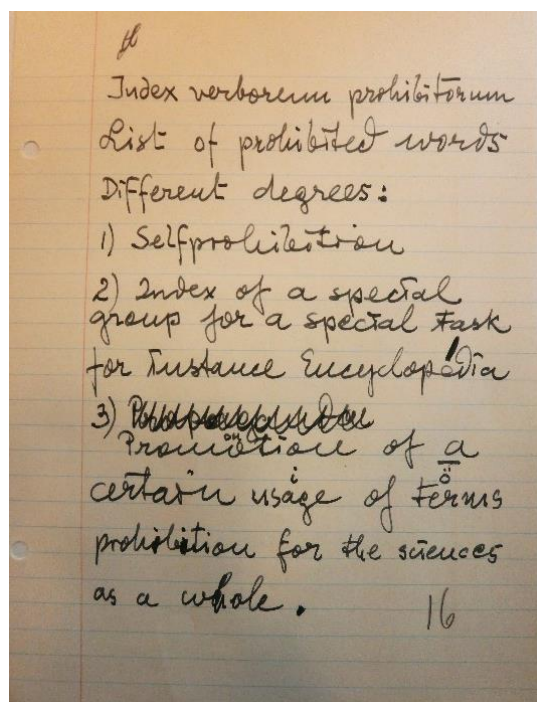 Index verborum prohibitorum
List of prohibited words
Different degrees:
1) Selfprohibition
2) Index of a special
group for a special task
for instance Encyclopedia
3)
Promotion of a
certain usage of terms
prohibition for the sciences
as a whole.
16